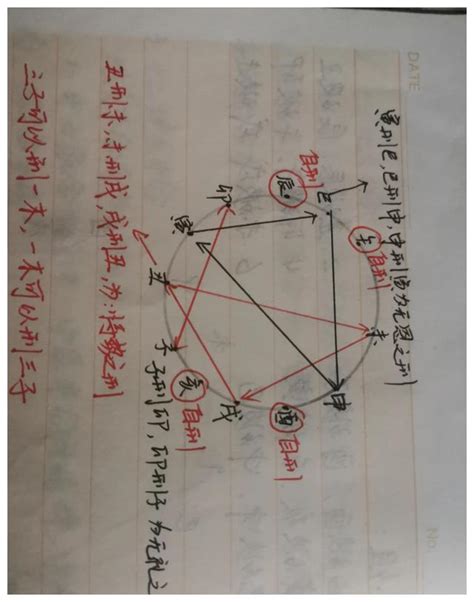 DATE
No.
寅刑巳,巳刑申,申刑寅为无恩之刑
午 自刑
未
申
巳
辰 自刑
酉 自刑
卯
戌
寅
亥 自刑
丑
子
子刑卯,卯刑子 为无礼之
丑刑未,未刑戌,戌刑丑,为:恃势之刑
三子可以刑一木,一木可以刑三子